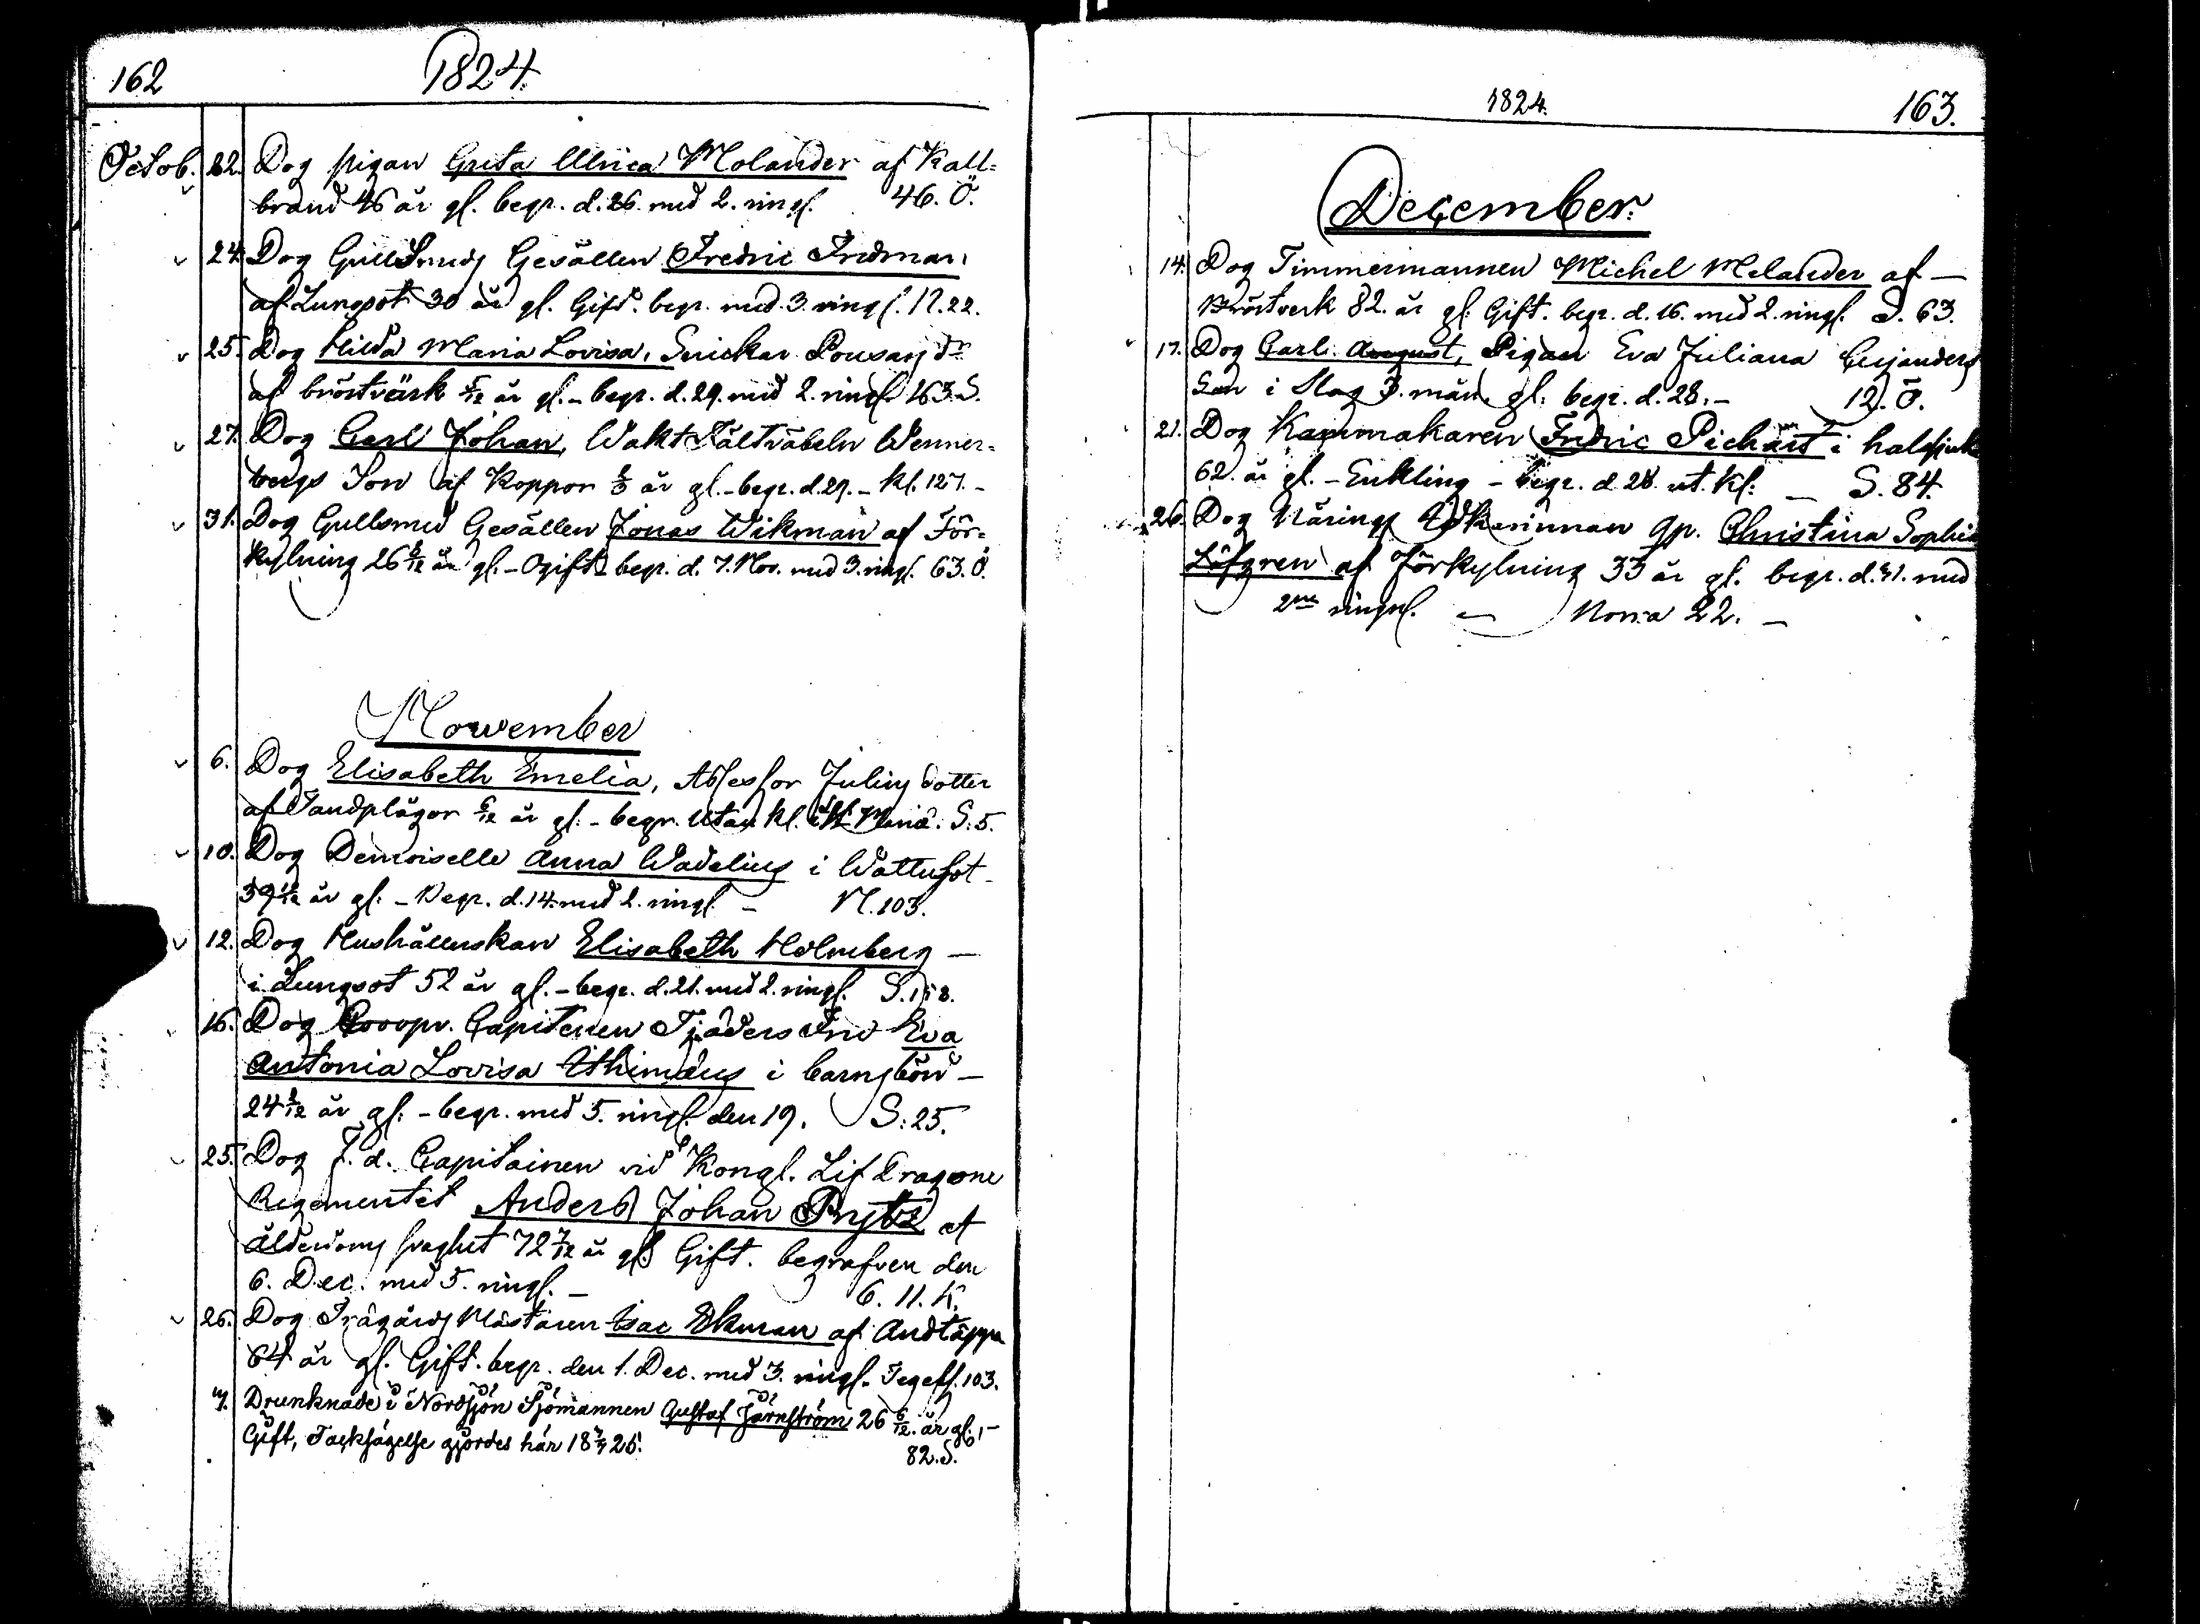 162
1824.
Octob. 22. Dog pigan Greta Ulrica Molander af Kall=
brand 46 år gl. begr. d. 26. med 2. ringl. 46. Ö.
24. Dog Gullsmeds Gesällen Fredric Fridman
af Lungsot 30 år gl. Gift. begr. med 3. ringl. N. 22.
25. Dog Hilda Maria Lovisa, Snickar dr
af bröstvärk 5/12 år gl. - begr. d. 29. med 2. ringl. 163. S.
27. Dog Carl Johan, Wakt Fältväbeln Wenner=
bergs Son af Koppor år gl. - begr. d. 29. - Kl. 127. -
31. Dog Gullsmed Gesällen Jonas Wikman af För=
kylning 26 år gl. - Ogift - begr. d. 7. Nov. med 3. ringl. 63. Ö.
November
6. Dog Elisabeth Emelia, Assessor Julins dotter
af Tandplågor 6/12 år gl. - begr. utan kl. S. 5.
10. Dog Demoiselle Anna Wadelius i Wattusot -
39 år gl: - Begr. d. 14. med 2. ringl. - N. 103.
12. Dog Hushållerskan Elisabeth Holmberg -
i Lungsot 52 år gl. - begr. d. 21. med 2. ringl. S. 158.
16. Dog Capitenen Tjäders Fru Eva
Antonia Lovisa i barnsbörd -
24 år gl: - begr. med 5. ringl. den 19. S: 25.
25. Dog F. d. Capitainen vid Kongl. Lif Dragone
Regementet Anders Johan Prytz af
ålderdoms svaghet 72 7/12 år gl. Gift. begrafven den
6. Dec. med 5. ringl. - 6. 11. K.
26. Dog Trägårds Mästaren Isac Ekman af Andtäppa
64 år gl. Gift. begr. den 1. Dec. med 3. ringl. Tegelsl. 103.
Drunknade i Nordsjön Sjömannen Gustaf Järnström 26 6/12. år gl., -
Gift, Tacksägelse gjordes här 18 25. 82. S.
1824.
163.
December.
14. Dog Timmermannen Michel Melander af -
Bröstverk 82. år gl: Gift. begr. d. 16. med 2. ringl. S. 63.
17. Dog Carl August, Pigan Eva Juliana
Son i Slag 3. mån. gl: begr. d. 28. - 12. Ö.
21. Dog Kammakaren Fredric Pichart i halssjuk
62. år gl. - Enkling - begr. d. 28. ut. Kl: - S. 84.
26. Dog Närings Idkerinnan gp. Christina Sophia
Löfgren af Förkylning 33 år gl. begr. d. 31. med
2ne ringnl. - Norra 22. -